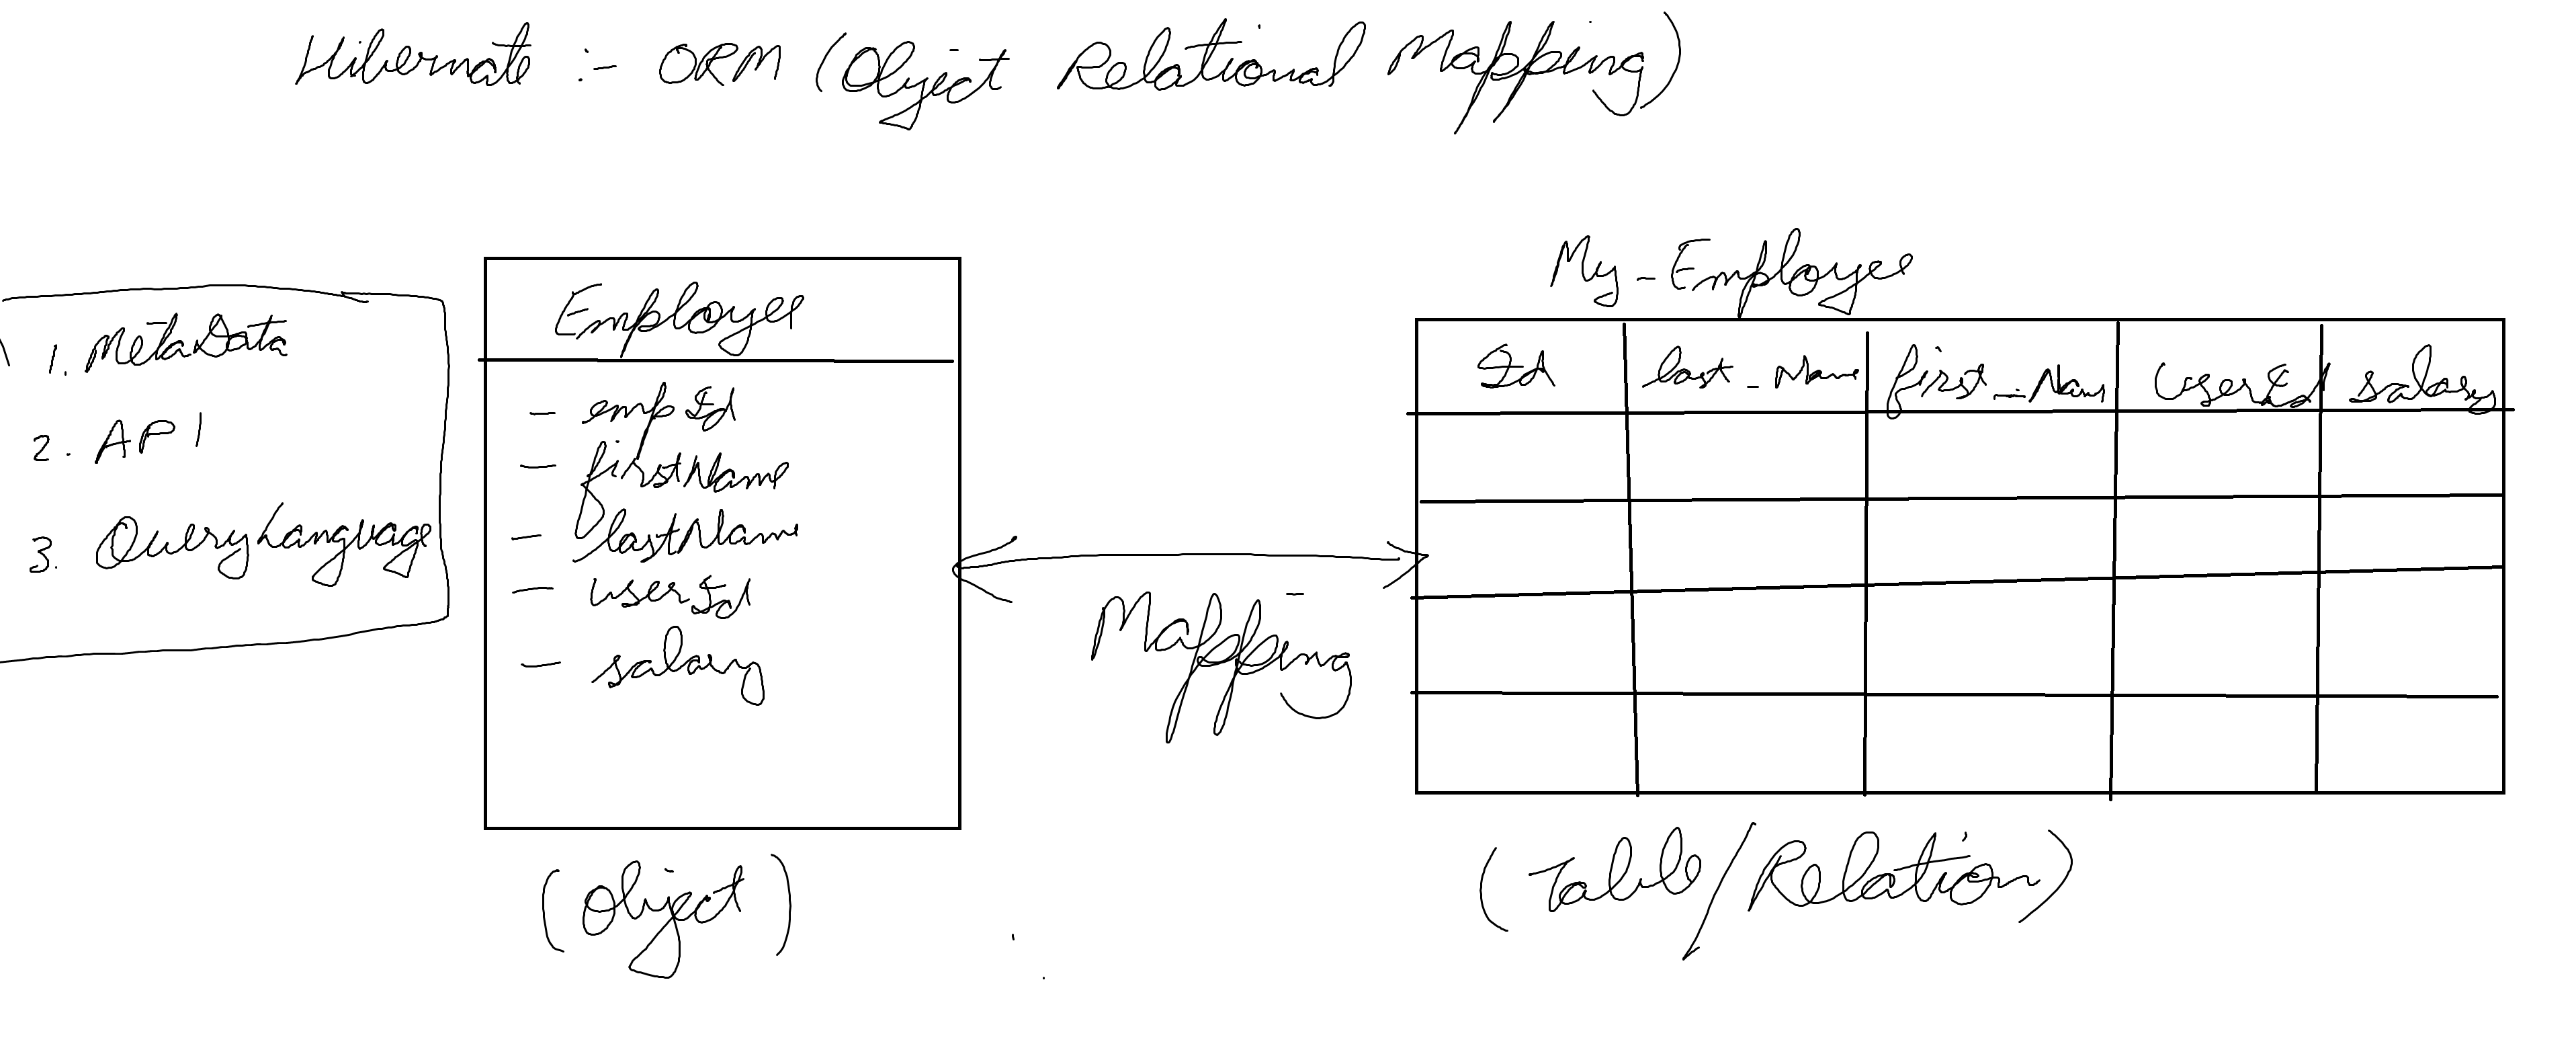 Hibernate :- ORM (Object Relational Mapping)
1. MetaData
2. API
3. QueryLanguage
Employee
- empId
- firstName
- lastName
- userId
- salary
(Object)
Mapping
My-Employee
Id last_Name first_Name userId salary
(Table/Relation)